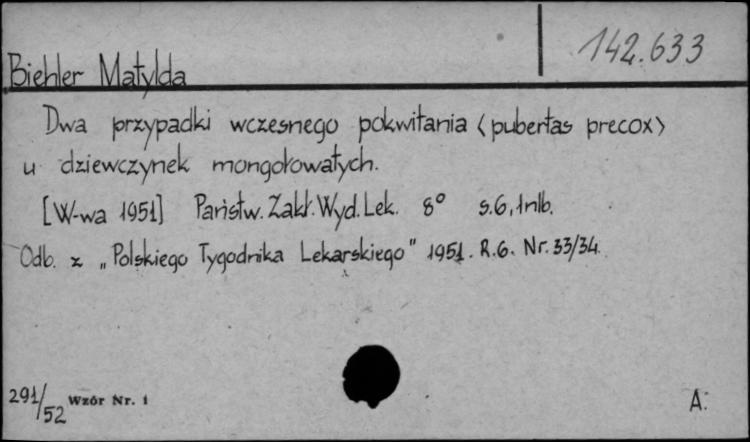 142.633
Biehler Matylda
Dwa przypadki wczesnego pokwitania <pubertas precox>
u dziewczynek mongołowatych.
[W-wa 1951] Państw. Zakł. Wyd. Lek. 8° s. 6, 1nlb.
Odb. z „Polskiego Tygodnika Lekarskiego" 1951. R. 6. Nr. 33/34.
291/52 Wzór Nr. 1
A.